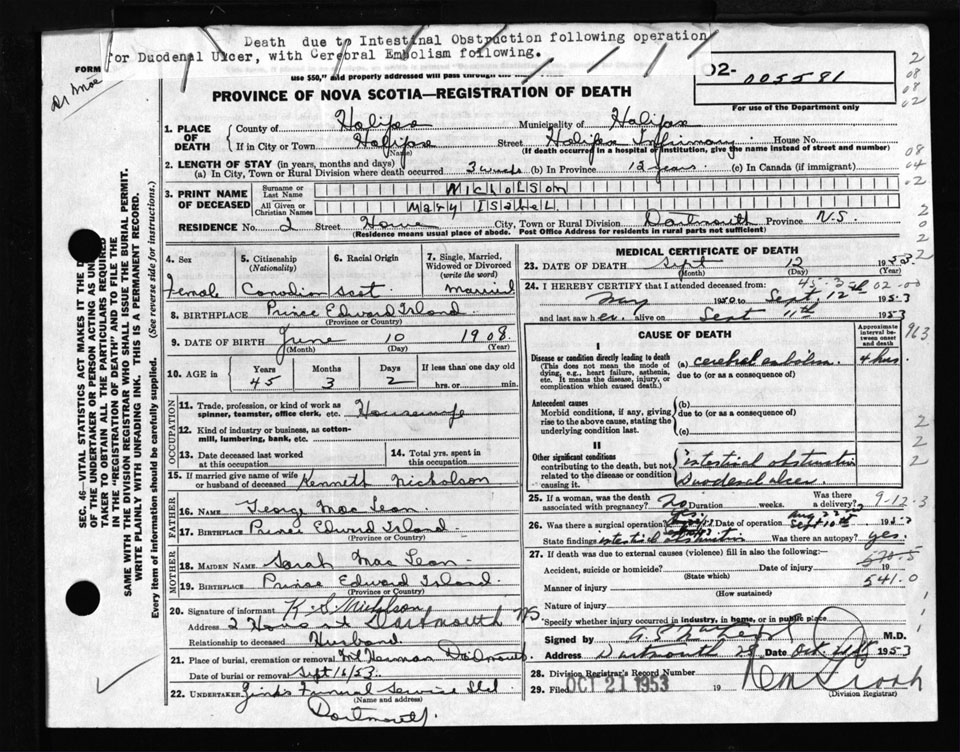 Death due to Intestinal Obstruction following operation
for Duodenal Ulcer, with Cerebral Embolism following.
FORM
use $50," and properly addressed will pass through the
02- 005581
For use of the Department only
PROVINCE OF NOVA SCOTIA—REGISTRATION OF DEATH
1. PLACE OF DEATH
County of Halifax Municipality of Halifax
If in City or Town Halifax Street Halifax Infirmary House No.
(Name) (If death occurred in a hospital or institution, give the name instead of street and number)
2. LENGTH OF STAY (in years, months and days)
(a) In City, Town or Rural Division where death occurred 3 weeks (b) In Province 12 years (c) In Canada (if immigrant)
3. PRINT NAME OF DECEASED
Surname or Last Name Nicholson
All Given or Christian Names Mary Isabel
RESIDENCE No. 2 Street City, Town or Rural Division Dartmouth Province N.S.
(Residence means usual place of abode. Post Office Address for residents in rural parts not sufficient)
SEC. 46—VITAL STATISTICS ACT MAKES IT THE D
OF THE UNDERTAKER OR PERSON ACTING AS UN
TAKER TO OBTAIN ALL THE PARTICULARS REQUIRED
IN THE "REGISTRATION OF DEATH" AND TO FILE THE
SAME WITH THE DIVISION REGISTRAR WHO SHALL ISSUE THE BURIAL PERMIT.
WRITE PLAINLY WITH UNFADING INK. THIS IS A PERMANENT RECORD.
Every item of information should be carefully supplied. (See reverse side for instructions.)
4. Sex Female
5. Citizenship (Nationality) Canadian
6. Racial Origin Scot
7. Single, Married, Widowed or Divorced (write the word) Married
8. BIRTHPLACE Prince Edward Island
(Province or Country)
9. DATE OF BIRTH June 10 1908
(Month) (Day) (Year)
10. AGE in Years 45 Months 3 Days 2 If less than one day old hrs. or min.
OCCUPATION
11. Trade, profession, or kind of work as spinner, teamster, office clerk, etc. Housewife
12. Kind of industry or business, as cotton-mill, lumbering, bank, etc.
13. Date deceased last worked at this occupation
14. Total yrs. spent in this occupation
15. If married give name of wife or husband of deceased Kenneth Nicholson
FATHER
16. Name George MacLean
17. BIRTHPLACE Prince Edward Island
(Province or Country)
MOTHER
18. MAIDEN NAME Sarah MacLean
19. BIRTHPLACE Prince Edward Island
(Province or Country)
20. Signature of informant K.S. Nicholson
Address 2 Dartmouth NS
Relationship to deceased Husband
21. Place of burial, cremation or removal Dartmouth
Date of burial or removal Sept 16/53
22. UNDERTAKER Funeral Service Ltd
(Name and address)
Dartmouth
MEDICAL CERTIFICATE OF DEATH
23. DATE OF DEATH Sept 12 1953
(Month) (Day) (Year)
24. I HEREBY CERTIFY that I attended deceased from:
May 1950 to Sept 12th 1953
and last saw her alive on Sept 11th 1953
CAUSE OF DEATH
Approximate interval between onset and death
I
Disease or condition directly leading to death
(This does not mean the mode of dying, e.g., heart failure, asthenia, etc. It means the disease, injury, or complication which caused death.)
(a) cerebral embolism 4 hrs.
due to (or as a consequence of)
Antecedent causes
Morbid conditions, if any, giving rise to the above cause, stating the underlying condition last.
(b)
due to (or as a consequence of)
(c)
II
Other significant conditions
contributing to the death, but not related to the disease or condition causing it.
intestinal obstruction
Duodenal ulcer
25. If a woman, was the death associated with pregnancy? No Duration weeks. Was there a delivery? 9-12-3
26. Was there a surgical operation? yes Date of operation Aug 22 Sept 10th 1953
State findings intestinal obstruction Was there an autopsy? yes.
27. If death was due to external causes (violence) fill in also the following:—
Accident, suicide or homicide? Date of injury 19
(State which)
Manner of injury 541.0
(How sustained)
Nature of injury
Specify whether injury occurred in industry, in home, or in public place
Signed by M.D.
Address Dartmouth NS Date Oct. 1953
28. Division Registrar's Record Number
29. Filed OCT 21 1953 19
(Division Registrar)